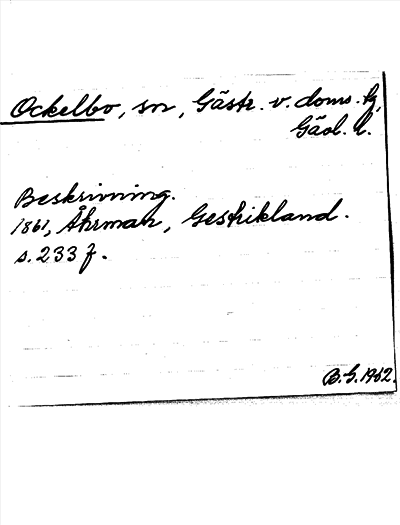 Ockelbo, sn, Gästr. v. doms. tg,
Gävl. l.
Beskrivning.
1861, Åhrman, Gestrikland.
s. 233 f.
B.G. 1962.